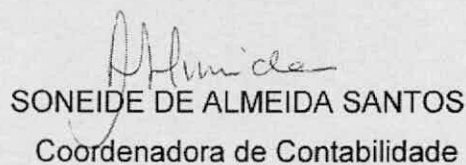 SONEIDE DE ALMEIDA SANTOS
Coordenadora de Contabilidade